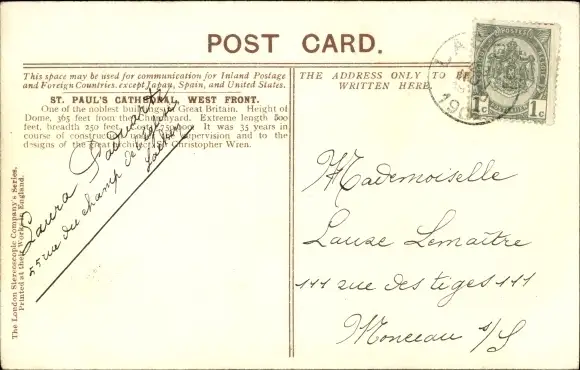 POST CARD.
This space may be used for communication for Inland Postage
and Foreign Countries, except Japan, Spain, and United States.
ST. PAUL'S CATHEDRAL, WEST FRONT.
One of the noblest buildings of Great Britain. Height of
Dome, 365 feet from the Churchyard. Extreme length 500
feet, breadth 250 feet. Cost £750,000. It was 35 years in
course of construction, under the supervision and to the
designs of the great architect, Sir Christopher Wren.
Laura
55 rue du champ de
The London Stereoscopic Company's Series.
Printed at their Works in England.
THE ADDRESS ONLY TO BE
WRITTEN HERE.
POSTES
1c 1c
Mademoiselle
Laure Lemaître
111 rue des tiges 111
Monceau s/S